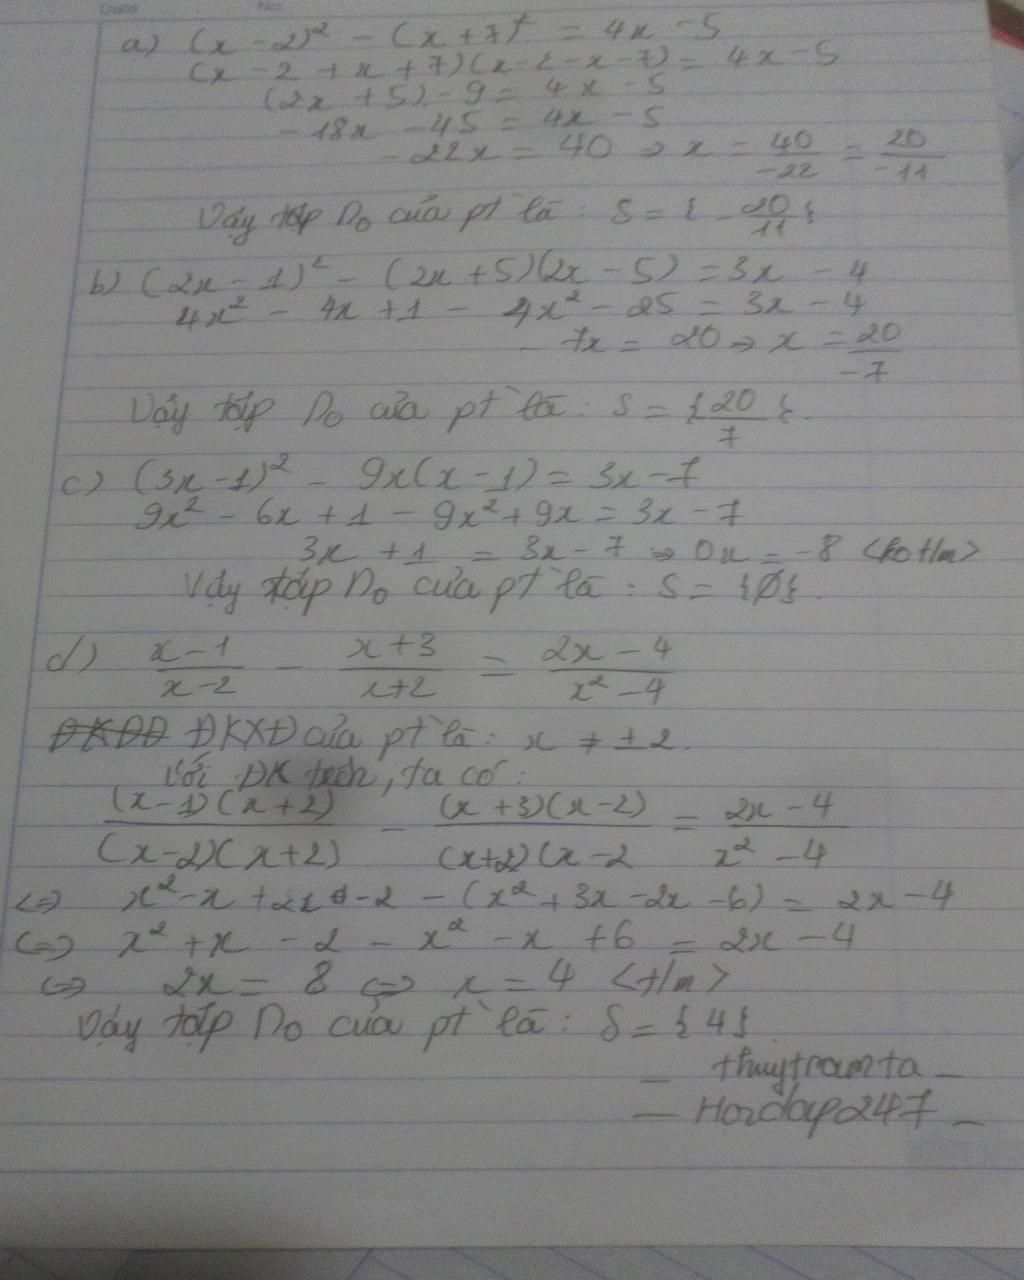 Date No.
a) (x - 2)² - (x + 7)² = 4x - 5
(x - 2 + x + 7)(x - 2 - x - 7) = 4x - 5
(2x + 5) - 9 = 4x - 5
- 18x - 45 = 4x - 5
- 22x = 40 => x = 40/-22 = 20/-11
Vậy tập No của pt là : S = { - 20/11 }
b) (2x - 1)² - (2x + 5)(2x - 5) = 3x - 4
4x² - 4x + 1 - 4x² - 25 = 3x - 4
- 7x = 20 => x = 20/-7
Vậy tập No của pt là : S = { 20/7 }.
c) (3x - 1)² - 9x(x - 1) = 3x - 7
9x² - 6x + 1 - 9x² + 9x = 3x - 7
3x + 1 = 3x - 7 => 0x = -8 <ko t/m>
Vậy tập No của pt là : S = {Ø}.
d) x - 1/x - 2 - x + 3/x + 2 = 2x - 4/x² - 4
ĐKXĐ của pt là : x ≠ ± 2.
Với ĐK trên, ta có :
(x - 1)(x + 2)/(x - 2)(x + 2) - (x + 3)(x - 2)/(x + 2)(x - 2 = 2x - 4/x² - 4
<=> x² - x + 2x - 2 - (x² + 3x - 2x - 6) = 2x - 4
<=> x² + x - 2 - x² - x + 6 = 2x - 4
<=> 2x = 8 <=> x = 4 <t/m>
Vậy tập No của pt là : S = {4}
- thuytramta -
- Hoidap247 -